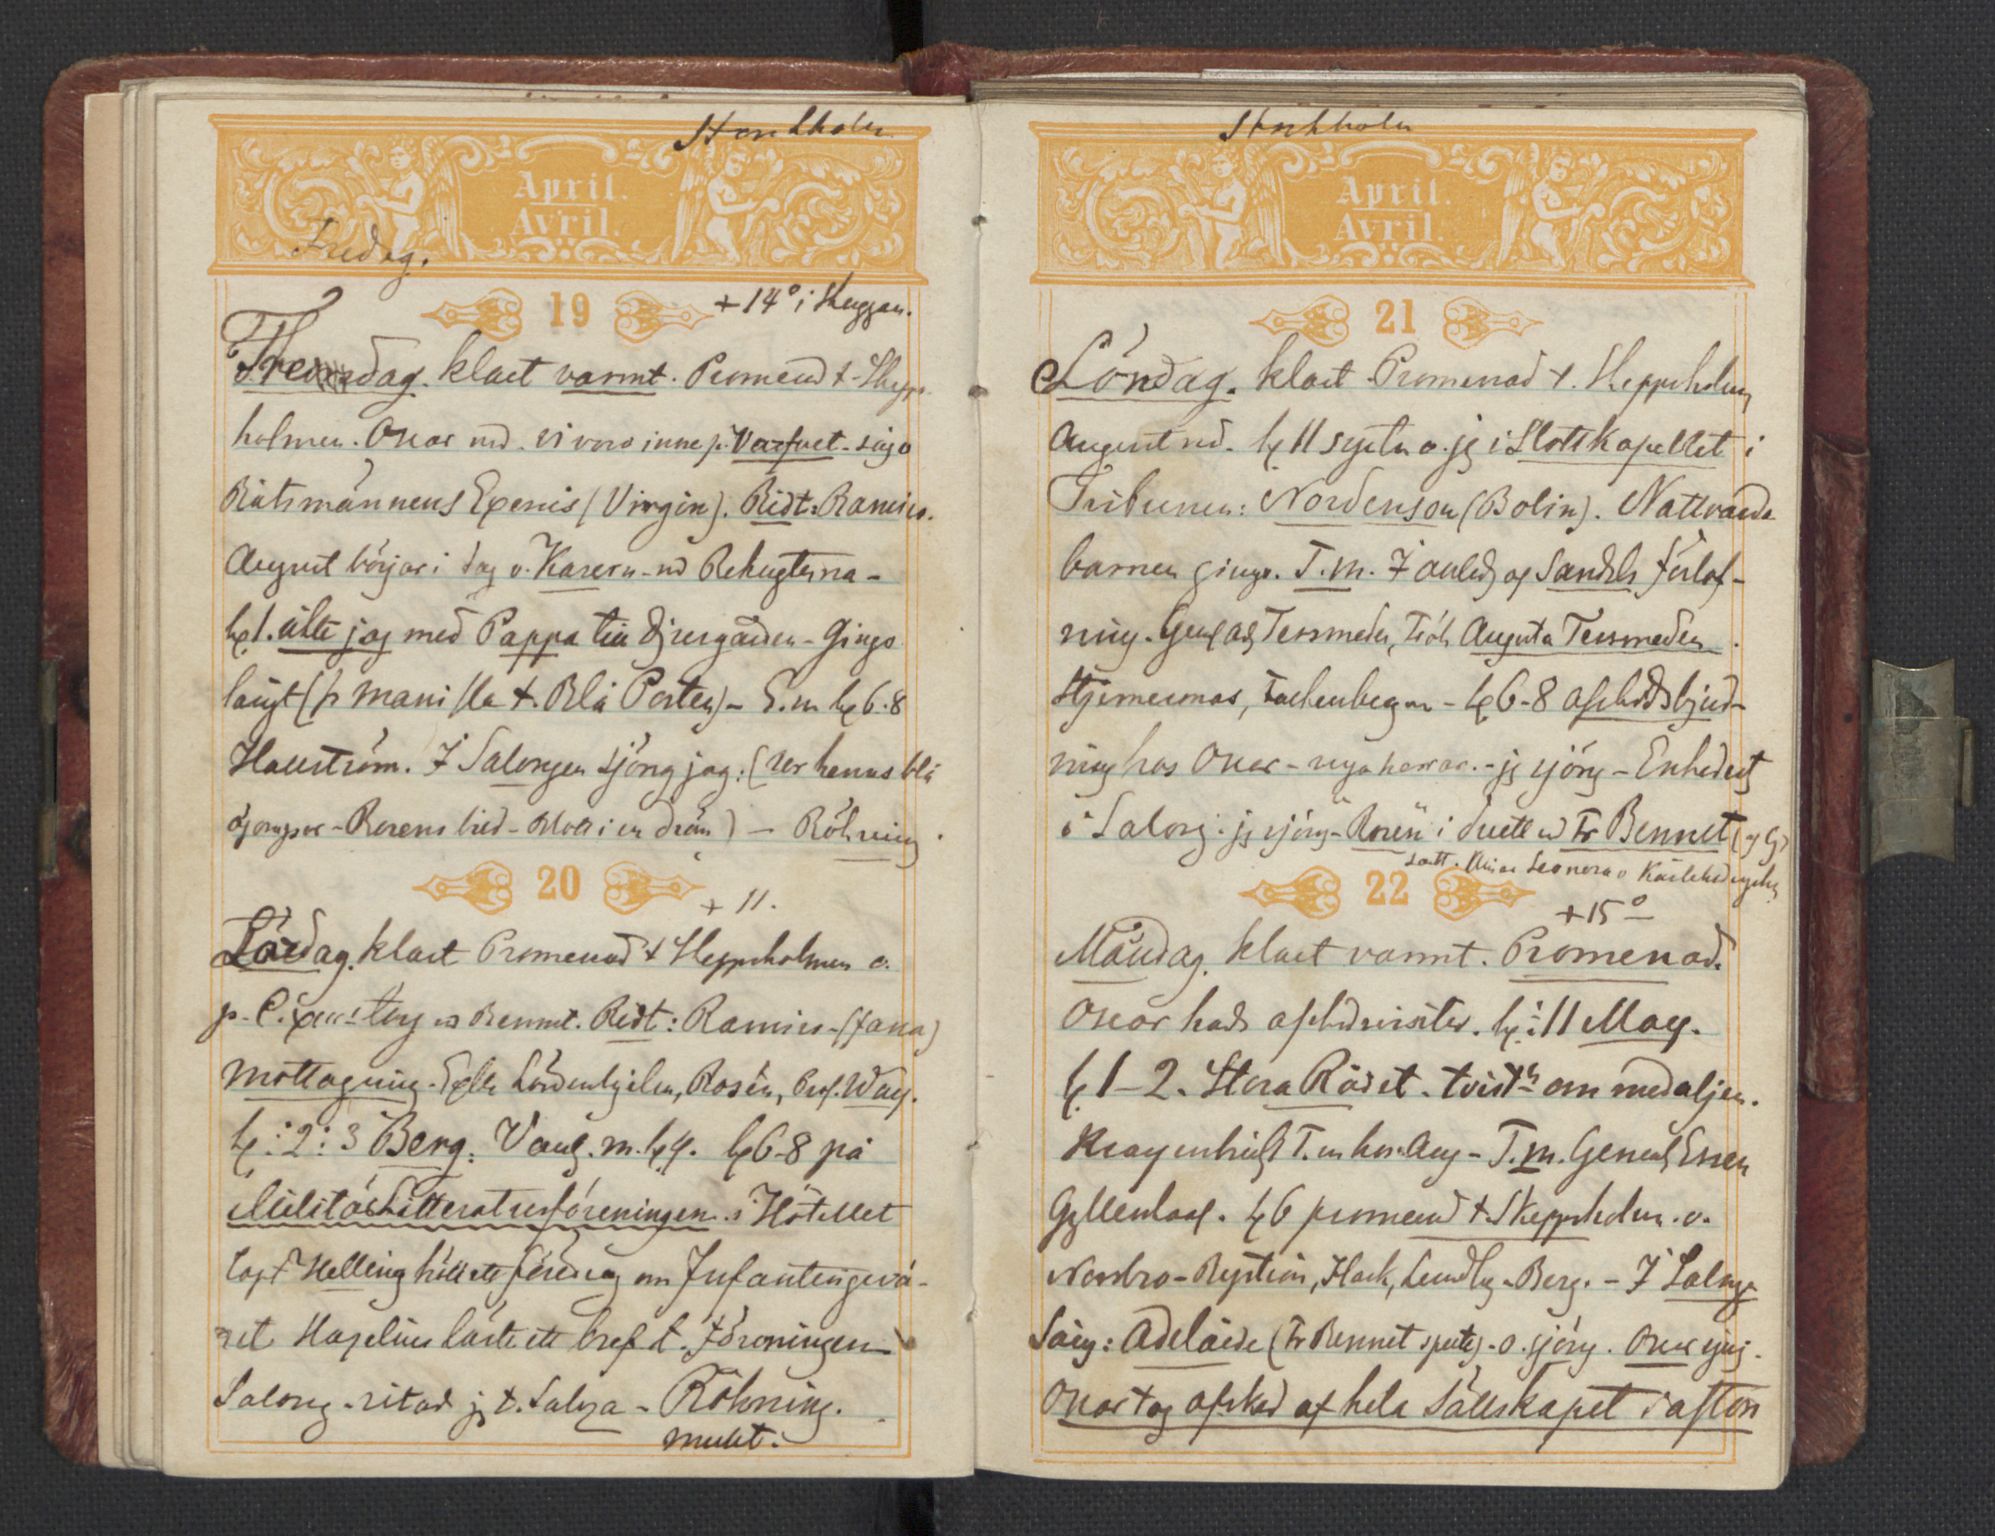 Stockholm
April.
Avril.
Fredag.
19
+14° i skuggan.
Fredag. klart varmt. Promenad t. Skepps
holmen. Oscar med. vi voro inne på Varfvet. sågo
Båtsmännens Exersis (Virgin). Ridt: Ramiro.
August börjar i dag v. Kasern. md Rekryterna -
kl 1. åkte jag med Pappa till Djurgården - Gingo
långt (fr Manilla t. Blå Porten) - E.m kl 6-8
Hallström. I Salongen sjöng jag: (Ur hennes blå
ögonpar - Rosens bud - Moll i en drän) - Röhning.
20
+ 11.
Lördag. klart Promenad t Skeppsholmen o.
p. Bennet. Ridt: Ramiro - (fana)
Mottagning. Löwenhjelm, Rosén, Prof. Way.
kl: 2: 3 Berg. m. kl 4. kl 6-8 på
Militärlitteraturföreningen. i Hôtellet
Capt Helling höll ett föredrag om Infanterigevä-
ret Hagelius läste ett bref t. föreningen
Salong - ritad jg t. Salza - Röhning.
mulet.
Stockholm
April.
Avril.
21
Söndag. klart. Promenad t. Skeppsholmen
August md. kl 11 o. jg i Slottskapellet i
Tribunen: Nordenson (Bolin). Nattvards
barnen gingo. T.m. af Sandels förlof-
ning. Tersmeden, Frök Augusta Tersmeden.
Stjernernas, - kl 6-8 afskedsbjud-
ning hos Oscar - unga herrar. - jg sjöng - Enkedrott
i Salong. jg sjöng "Rosen" i duett md Fr Bennet
Leonora o
22
+15°
Måndag. klart varmt. Promenad.
Oscar hade afskedsvisiter. kl: 11 May.
kl 1-2. Stora Rådet. tvist om medaljen.
T.m hos Aug - T.m. General Essen
Gyllenhaal. kl 6 promenad t. Skeppsholm. o.
Norrbro - Lundby - Berg. - I Salong
Sång: Adelaide (Fr Bennet spelte) - o. sjöng. Oscar sjöng.
Oscar tog afsked af hela Sällskapet i afton